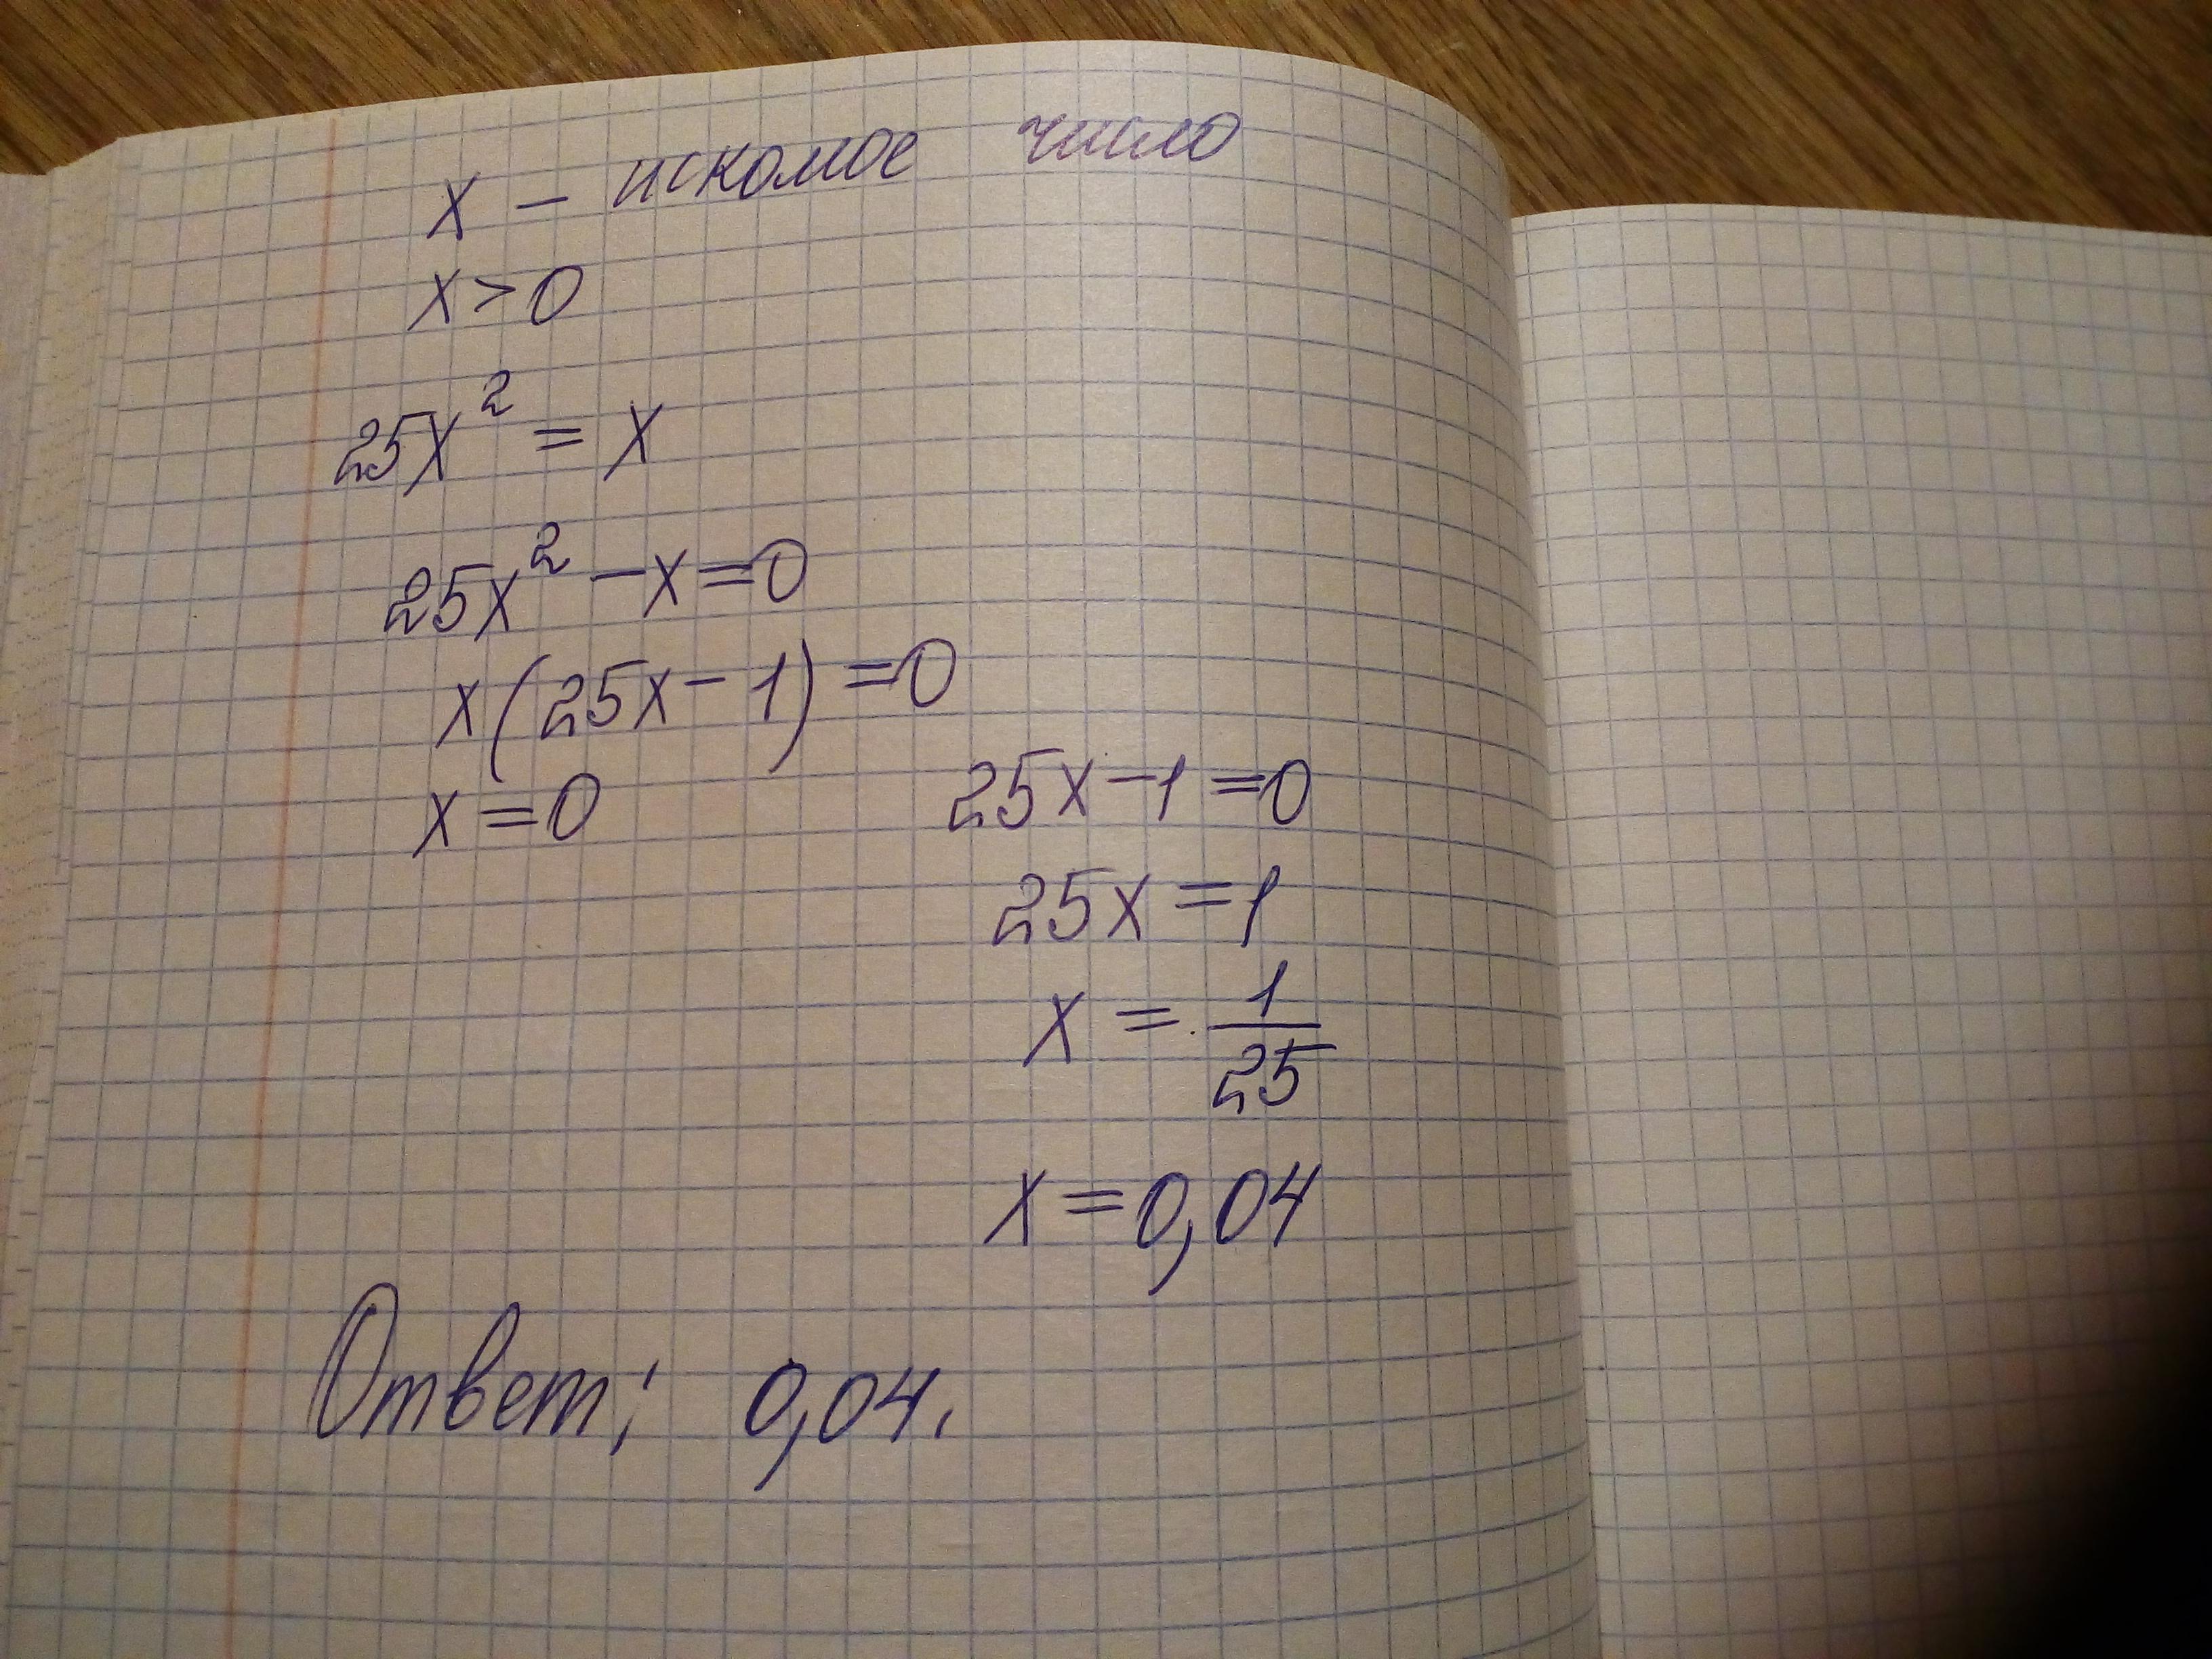 x – искомое число
x > 0
25x² = x
25x² – x = 0
x(25x – 1) = 0
x = 0
25x – 1 = 0
25x = 1
x = 1/25
x = 0,04
Ответ: 0,04.